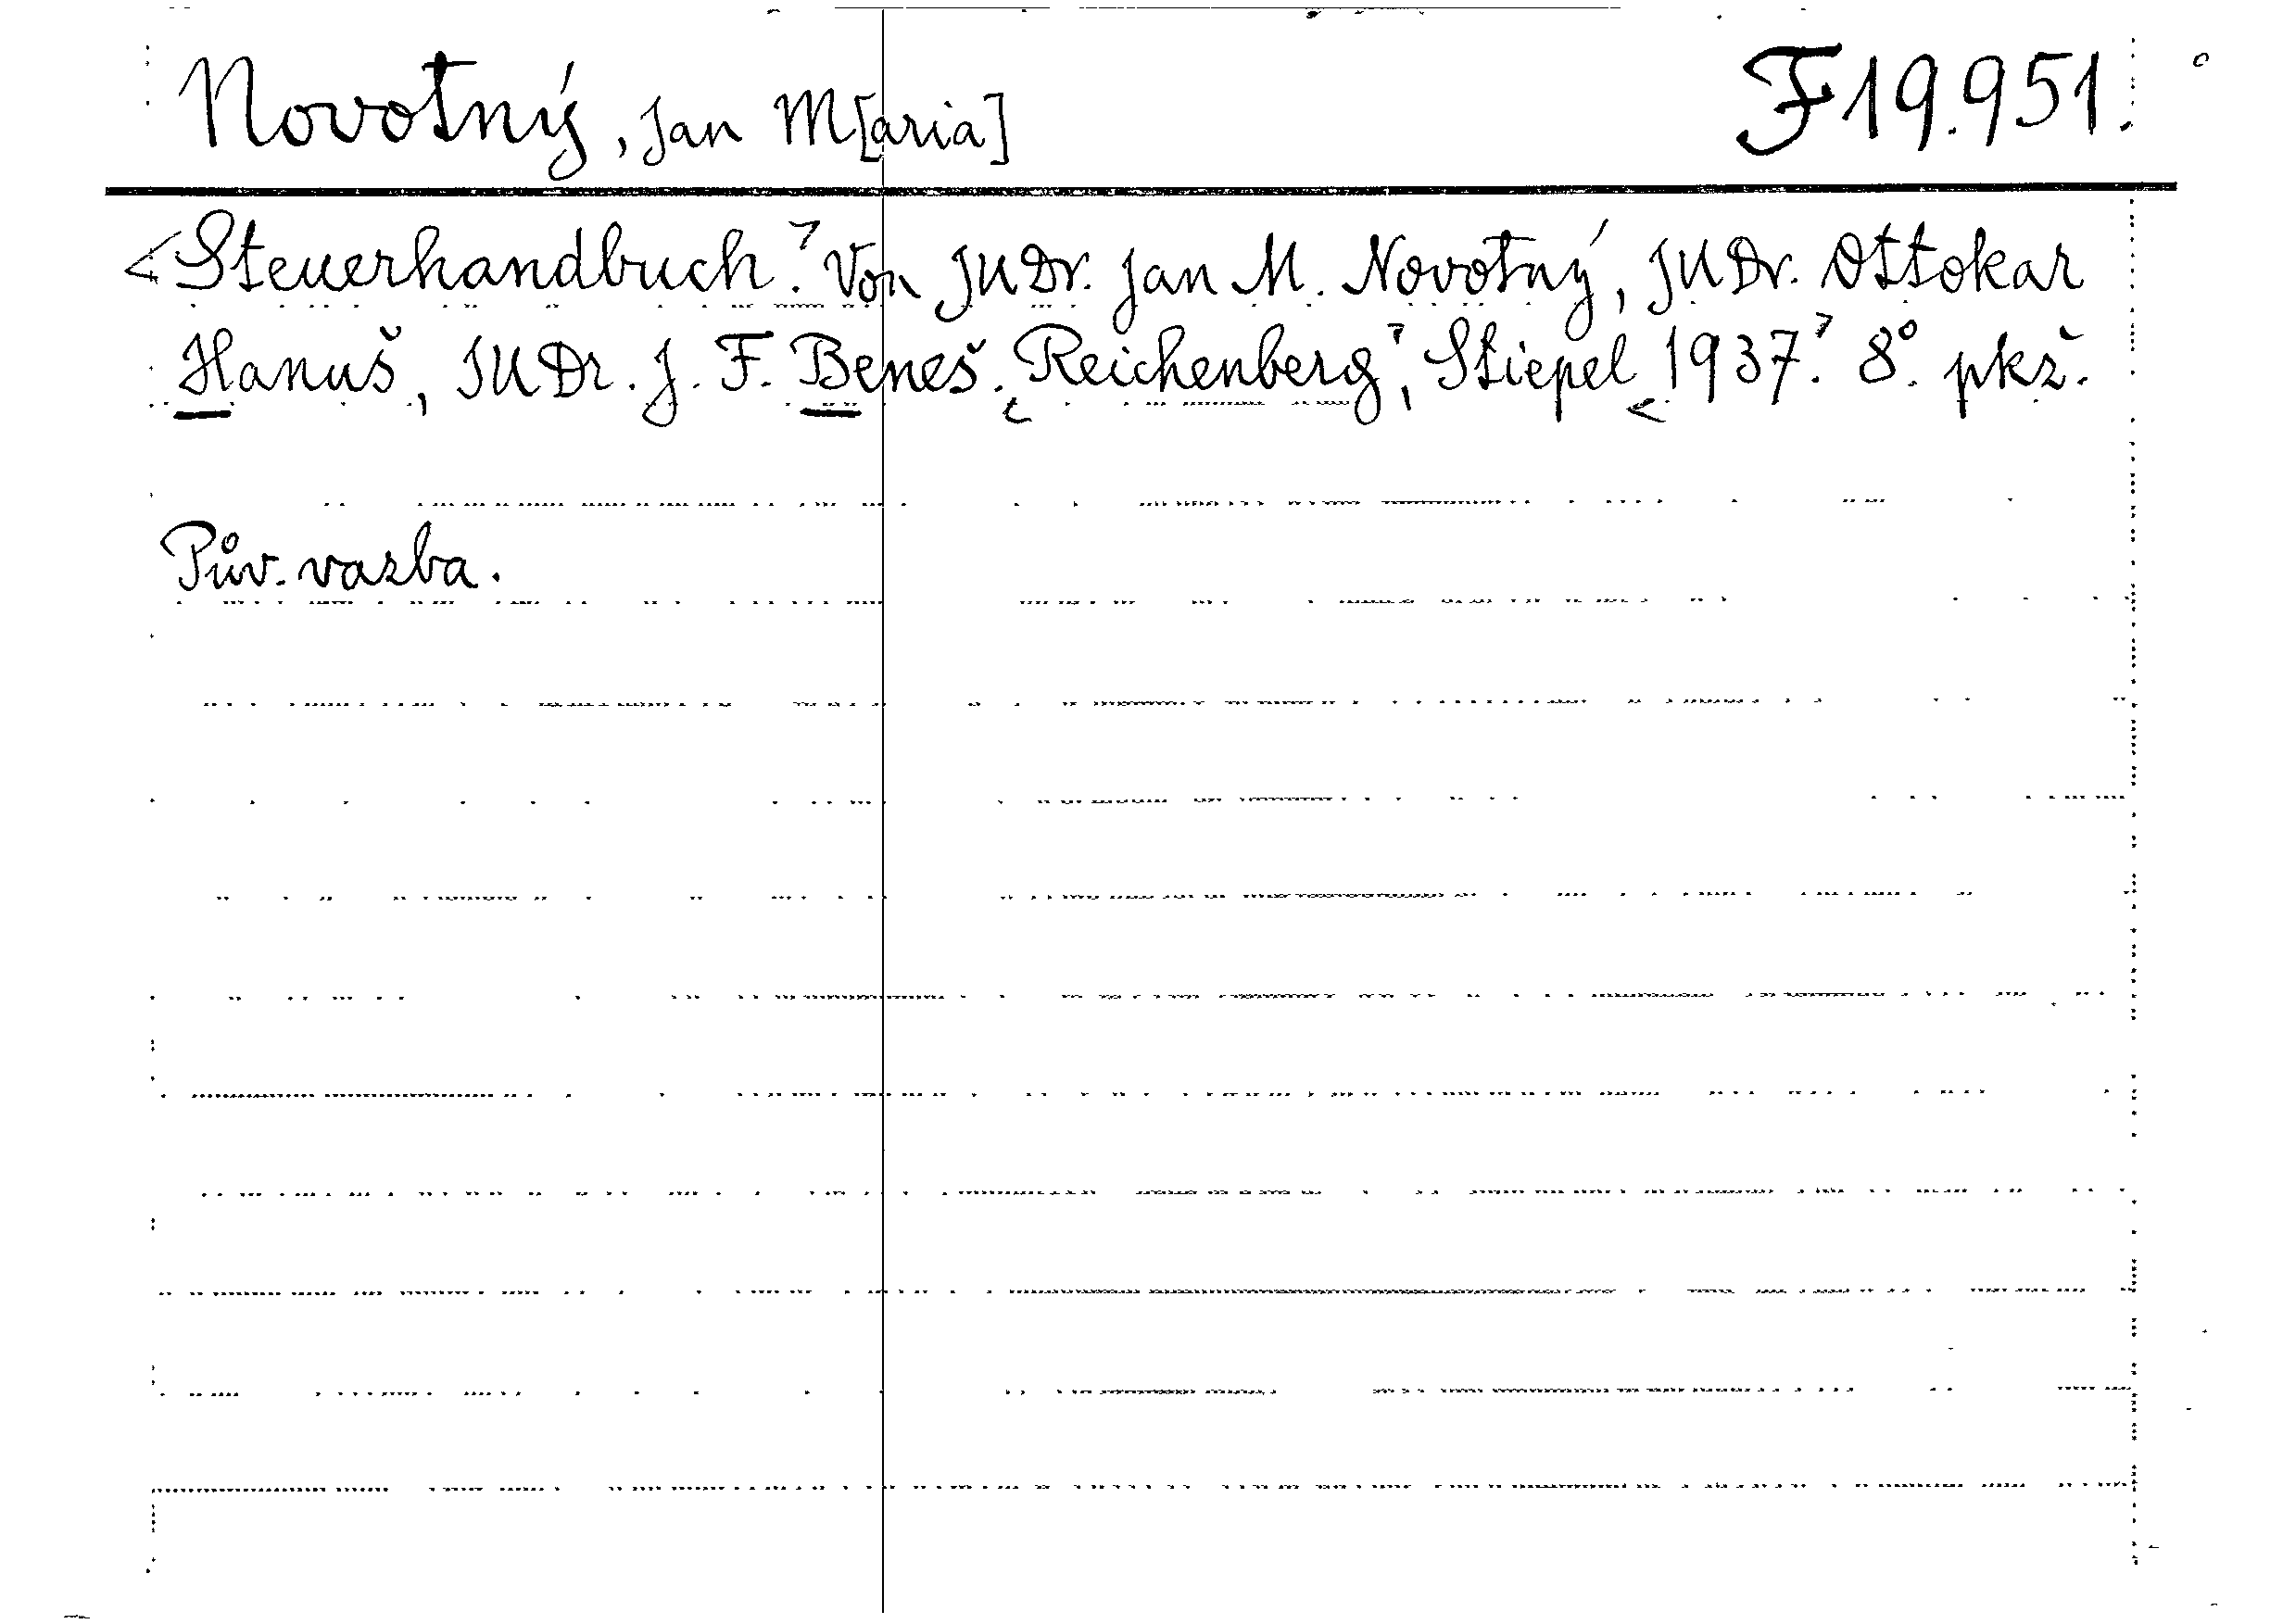 Novotný, Jan M[aria] F 19.951.
<Steuerhandbuch.> Von JUDr. Jan M. Novotný, JUDr. Ottokar
Hanuš, JUDr. J. F. Beneš. <Reichenberg>, Stiepel <1937.> 8°. pkž.
Pův. vazba.